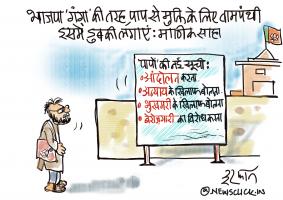 भाजपा 'गंगा' की तरह, पाप से मुक्ति के लिए वामपंथी
इसमें डुबकी लगाएं : माणिक साहा
पापों की नई सूची :
• आंदोलन करना
• अन्याय के खिलाफ बोलना
• भुखमरी के खिलाफ बोलना
• बेरोज़गारी का विरोध करना
इरफ़ान
@NEWSCLICK.IN